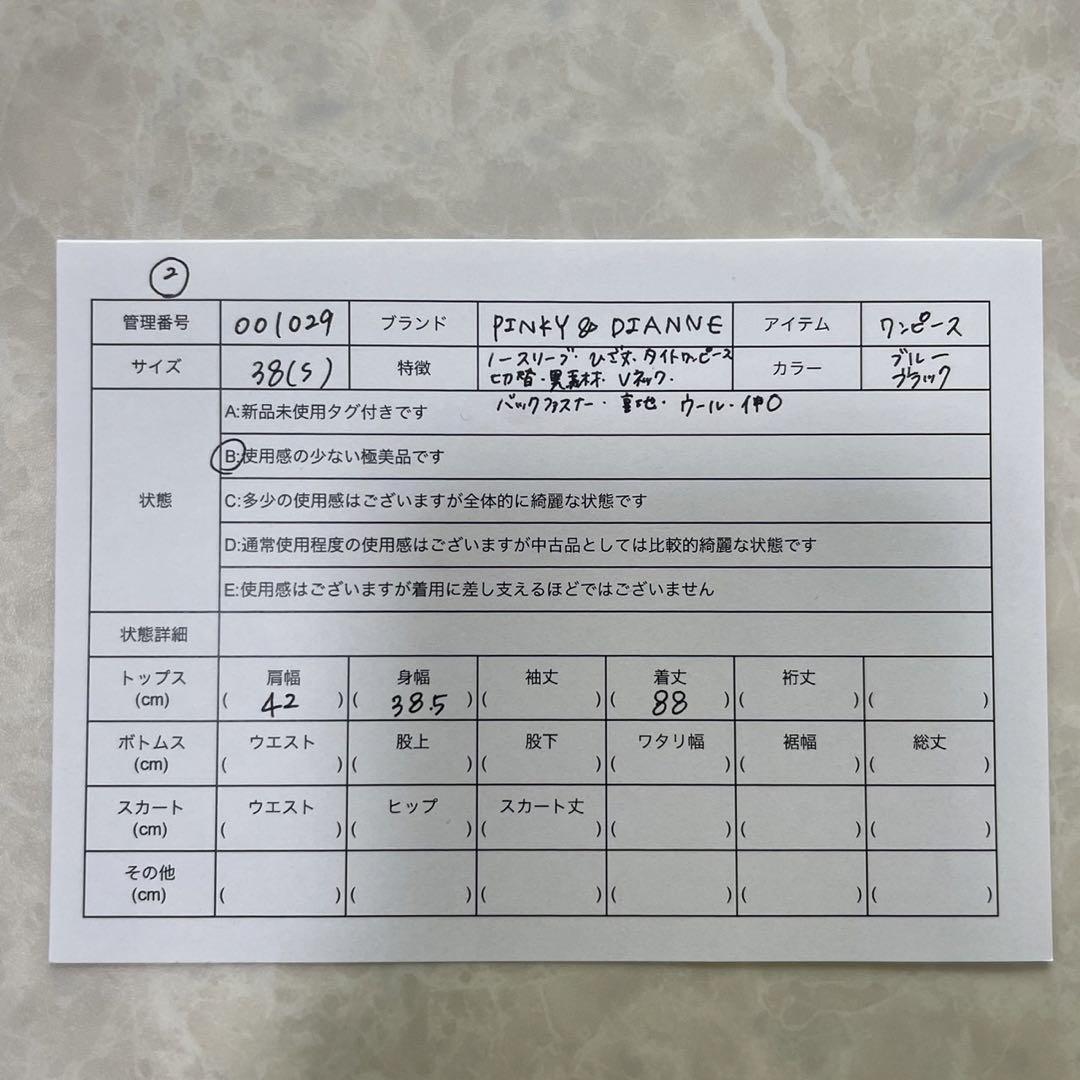 ②
管理番号 001029 ブランド PINKY & DIANNE アイテム ワンピース
サイズ 38(S) 特徴 ノースリーブ・ひざ丈・タイトワンピース カラー ブルー
切替・異素材・Vネック・ ブラック
バックファスナー・裏地・ウール・伸〇
状態
A:新品未使用タグ付きです
B:使用感の少ない極美品です
C:多少の使用感はございますが全体的に綺麗な状態です
D:通常使用程度の使用感はございますが中古品としては比較的綺麗な状態です
E:使用感はございますが着用に差し支えるほどではございません
状態詳細
トップス 肩幅 身幅 袖丈 着丈 裄丈
(cm) ( 42 ) ( 38.5 ) ( ) ( 88 ) ( ) ( )
ボトムス ウエスト 股上 股下 ワタリ幅 裾幅 総丈
(cm) ( ) ( ) ( ) ( ) ( ) ( )
スカート ウエスト ヒップ スカート丈
(cm) ( ) ( ) ( ) ( ) ( ) ( )
その他
(cm) ( ) ( ) ( ) ( ) ( ) ( )